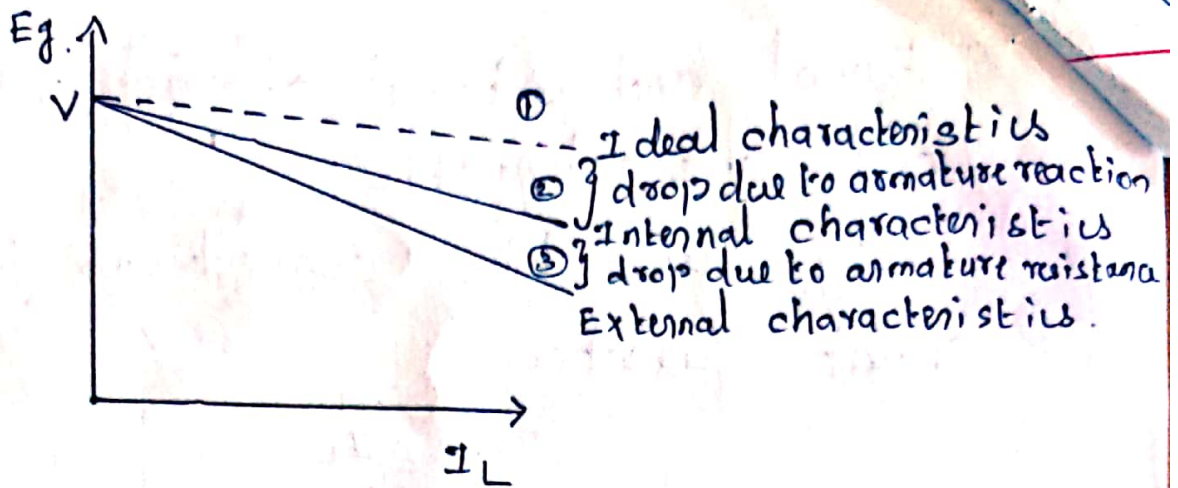 Eg.
V
①
Ideal characteristics
② } drop due to armature reaction
Internal characteristics
③ } drop due to armature resistana
External characteristics.
I L